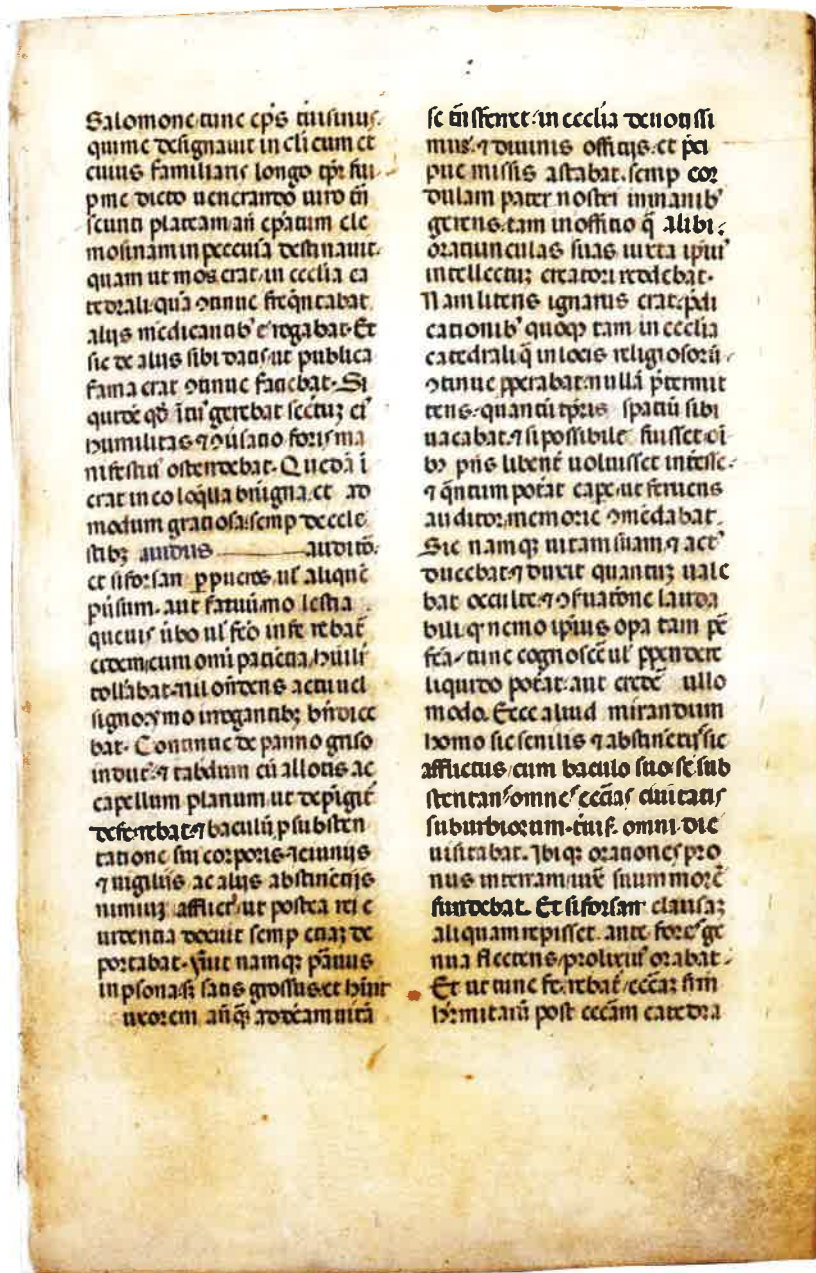 Salomone tunc ep̄s tͥuisinus.
qui me designauit in clicum et
cuius familiaris longo tp̄r fui
pme dicto uenerando uiro tn̄
seunti plateam an̄ ep̄atum ele
mosinam in peccūia destinauit.
quam ut mos erat in ecclīa ca
tedrali qua ꝯtinue freq̄ntabat
alijs medicantibꝰ e rogabat. Et
sic de alijs sibi datis ut publica
fama erat ꝯtinue faciebat. Si
quidē qđ ītuꝰ gerebat sectuꝫ eiꝰ
humilitas ⁊ ꝯuersatio foris ma
nifestiuꝰ ostendebat. Quedā ī
erat in eo loq̄la bn̄igna et ad
modum gratiosa semp de cele
stibꝫ auidus auditor.
et si forsan ꝑ pueros ul̓ aliquē
p̄uisum. aut fatuū molestia
queuis ūbo ul̓ fc̄o inferebat̄
eidem cum omī paciētia hūili
tollābat. nil oñdens actu uel
signo ymo irrogantibꝫ bn̄dice
bat. Continue de panno griso
indutꝰ ⁊ tabdum cū allotis ac
capellum planum ut depīgit̄
deferebat ⁊ baculū ꝓ subsisten
tatione sui corporis ieiunijs
⁊ uigilijs ac alijs abstinētijs
nimiuꝫ afflictꝰ ut postea rei e
uidentia docuit semp etiaꝫ de
portabat. Fuit namqꝫ paruus
in psona sꝫ satis grossus et hūit
uxorem anq̄ꝫ ad deam uitā
se tn̄sferret. in ecclīa deuotissi
musꝰ ⁊ diuinis officijs. et p̄ci
pue missis astabat. semp cor
dulam pater nostri in manibꝰ
gerens. tam in offitio q̄ alibi
oratiunculas suas iuxta ipiuꝰ
intellectuꝫ creatori reddebat.
Nam literis ignarus erat. p̄di
cationibꝰ quoqꝫ tam in ecclīa
catedrali q̄ in locis religiosorū
ꝯtinue pperabat nullā p̄termit
tens. quantū tp̄ris spatiū sibi
uacabat. ⁊ si possibile fuisset oī
bꝫ p̄ns libent̄ uoluisset int̄esse.
⁊ q̄ntum pot̄at cape ut feruens
auditor memorie ꝯmēdabat.
Sic namqꝫ uitam suam ⁊ actꝰ
ducebat ⁊ duxit quantuꝫ uale
bat occulte. ⁊ ꝯseruatōne lauda
bili q̄ nemo ipius opa tam pe
fcā tunc cognoscē ul̓ ppendere
liquido pot̄at. aut credē ullo
modo. Ecce aliud mirandum
homo sic senilis ⁊ abstinētijs sic
afflictus cum baculo suo se sub
stentans omnes eccīas ciuitatis
suburbiorum. tͥuis. omni die
uisitabat. Ibiqꝫ orationes pro
nus in terram iuxͣ suum morē
fundebat. Et si forsan clausaꝫ
aliquam repisset. ante fores ge
nua flectens prolixiuꝰ orabat.
Et ut tunc ferebat̄ eccīaꝫ sͥm
hermitarū post eccīam catedra